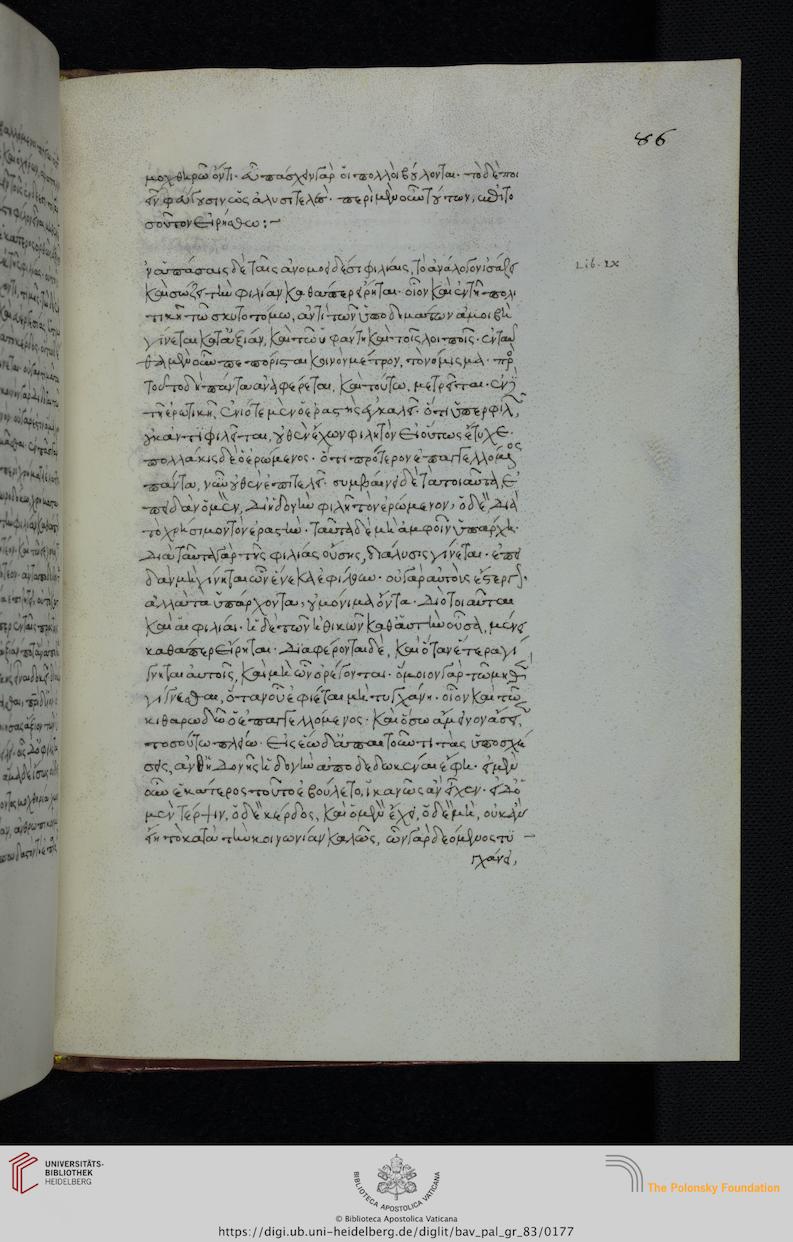 86
μοχθηρῶ ὄντι· εὖ πάσχειν γὰρ οἱ πολλοὶ βούλονται· τὸ δὲ ποι
εῖν φεύγουσιν ὡς ἀλυσιτελές· περὶ μὲν οὖν τούτων, ἐπὶ το
σοῦτον εἰρήσθω:~
Lib. IX
ν πάσαις δὲ ταῖς ἀνομοειδέσι φιλίαις, τὸ ἀνάλογον ἰσάζει
καὶ σώζει τὴν φιλίαν καθάπερ εἴρηται· οἷον καὶ ἐν τῇ πολι
τικῇ τῶ σκυτοτόμω, ἀντὶ τῶν ὑποδημάτων ἀμοιβὴ
γίνεται κατ' ἀξίαν, καὶ τῶ ὑφάντῃ καὶ τοῖς λοιποῖς· ἐνταῦ
θα μὲν οὖν πεπόρισται κοινὸν μέτρον, τὸ νόμισμα· πρὸς
τοῦτο δὴ πάντα ἀναφέρεται, καὶ τούτω, μετρεῖται· ἐν δὲ
τῇ ἐρωτικῇ, ἐνίοτε μὲν ὁ ἐραστὴς ἐγκαλεῖ· ὅτι ὑπερφιλῶν
οὐκ ἀντιφιλεῖται, οὐθὲν ἔχων φιλητὸν εἰ οὕτως ἔτυχε·
πολλάκις δὲ ὁ ἐρώμενος· ὅτι πρότερον ἐπαγγελλόμενος
πάντα, νῦν οὐθὲν ἐπιτελεῖ· συμβαίνει δὲ τὰ τοιαῦτα, ἐ
πειδὰν ὁ μὲν, δι' ἡδονὴν φιλῇ τὸν ἐρώμενον, ὁ δὲ, διὰ
τὸ χρήσιμον τὸν ἐραστήν· ταῦτα δὲ μὴ ἀμφοῖν ὑπάρχῃ·
διὰ ταῦτα γὰρ τῆς φιλίας οὔσης, διάλυσις γίνεται· ἐπει
δὰν μὴ γίνηται ὧν ἕνεκα ἐφίλουν· οὐ γὰρ αὐτοὺς ἔστεργον·
ἀλλὰ τὰ ὑπάρχοντα, οὐ μόνιμα ὄντα· διὸ τοιαῦται
καὶ αἱ φιλίαι· ἡ δὲ τῶν ἠθικῶν καθ' αὑτὴν οὖσα, μένει
καθάπερ εἴρηται· διαφέρονται δὲ, καὶ ὅταν ἕτερα γί
γνηται αὐτοῖς, καὶ μὴ ὧν ὀρέγονται· ὅμοιον γὰρ τῶ μηθὲν
γίγνεσθαι, ὅταν οὗ ἐφίεται μὴ τυγχάνῃ· οἷον καὶ τῶ
κιθαρωδῶ ὁ ἐπαγγελλόμενος· καὶ ὅσω ἄμεινον ἄσειεν,
τοσούτω πλείω· εἰς ἕω δ' ἀπαιτοῦντι τὰς ὑποσχέ
σεις, ἀνθ' ἡδονῆς ἡδονὴν ἀποδεδωκέναι ἔφη· εἰ μὲν
οὖν ἑκάτερος τοῦτο ἐβούλετο, ἱκανῶς ἂν εἶχεν· εἰ δ' ὁ
μὲν τέρψιν, ὁ δὲ κέρδος, καὶ ὁ μὲν ἔχει, ὁ δὲ μὴ, οὐκ ἂν
εἴη τὸ κατὰ τὴν κοινωνίαν καλῶς, ὧν γὰρ δεόμενος τυ
γχάνει,
UNIVERSITÄTS-
BIBLIOTHEK
HEIDELBERG
BIBLIOTECA APOSTOLICA VATICANA
The Polonsky Foundation
© Biblioteca Apostolica Vaticana
https://digi.ub.uni-heidelberg.de/diglit/bav_pal_gr_83/0177